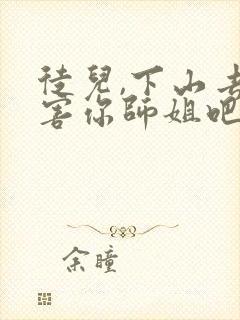 徒兒,下山去
害你師姐吧
余瞳